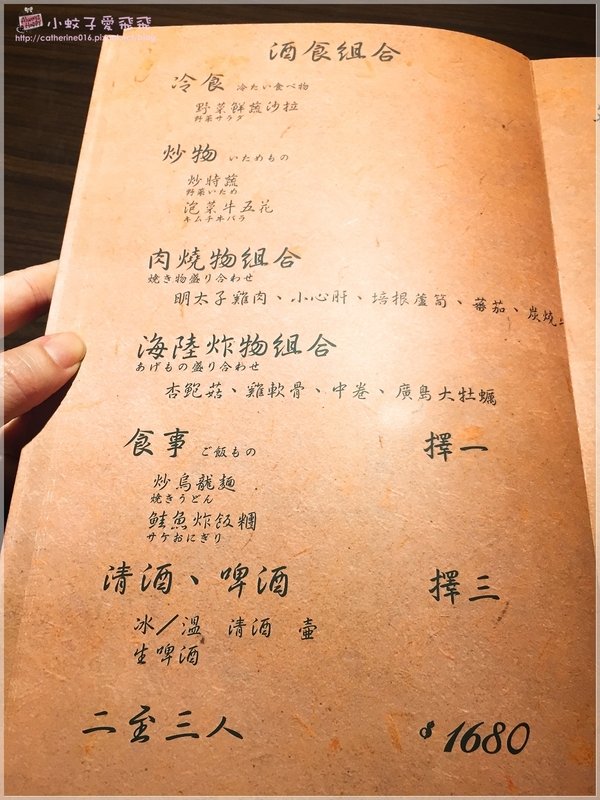 小蚊子愛飛飛
酒食組合
冷食 冷たい食べ物
野菜鮮蔬沙拉
野菜サラダ
炒物 いためもの
炒時蔬
野菜いため
泡菜牛五花
キムチ牛バラ
肉燒物組合
焼き物盛り合わせ
明太子雞肉、小心肝、培根蘆筍、蕃茄、炭燒
海陸炸物組合
あげもの盛り合わせ
杏鮑菇、雞軟骨、中卷、廣島大牡蠣
食事 ご飯もの 擇一
炒烏龍麵
焼きうどん
鮭魚炸飯糰
サケおにぎり
清酒、啤酒 擇三
冰／溫 清酒 壺
生啤酒
二至三人 $1680